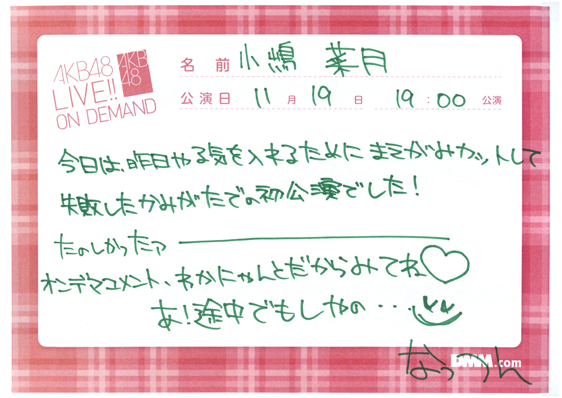 AKB48
LIVE!!
ON DEMAND
AKB
48
名前 小嶋 菜月
公演日 11月19日 19:00公演
今日は、昨日やる気を入れるためにまえがみカットして
失敗したかみがたでの初公演でした!
たのしかったァ
オンデマコメント、わかにゃんとだからみてね♡
あ!途中でもしやの・・・
DMM.com
なっつん